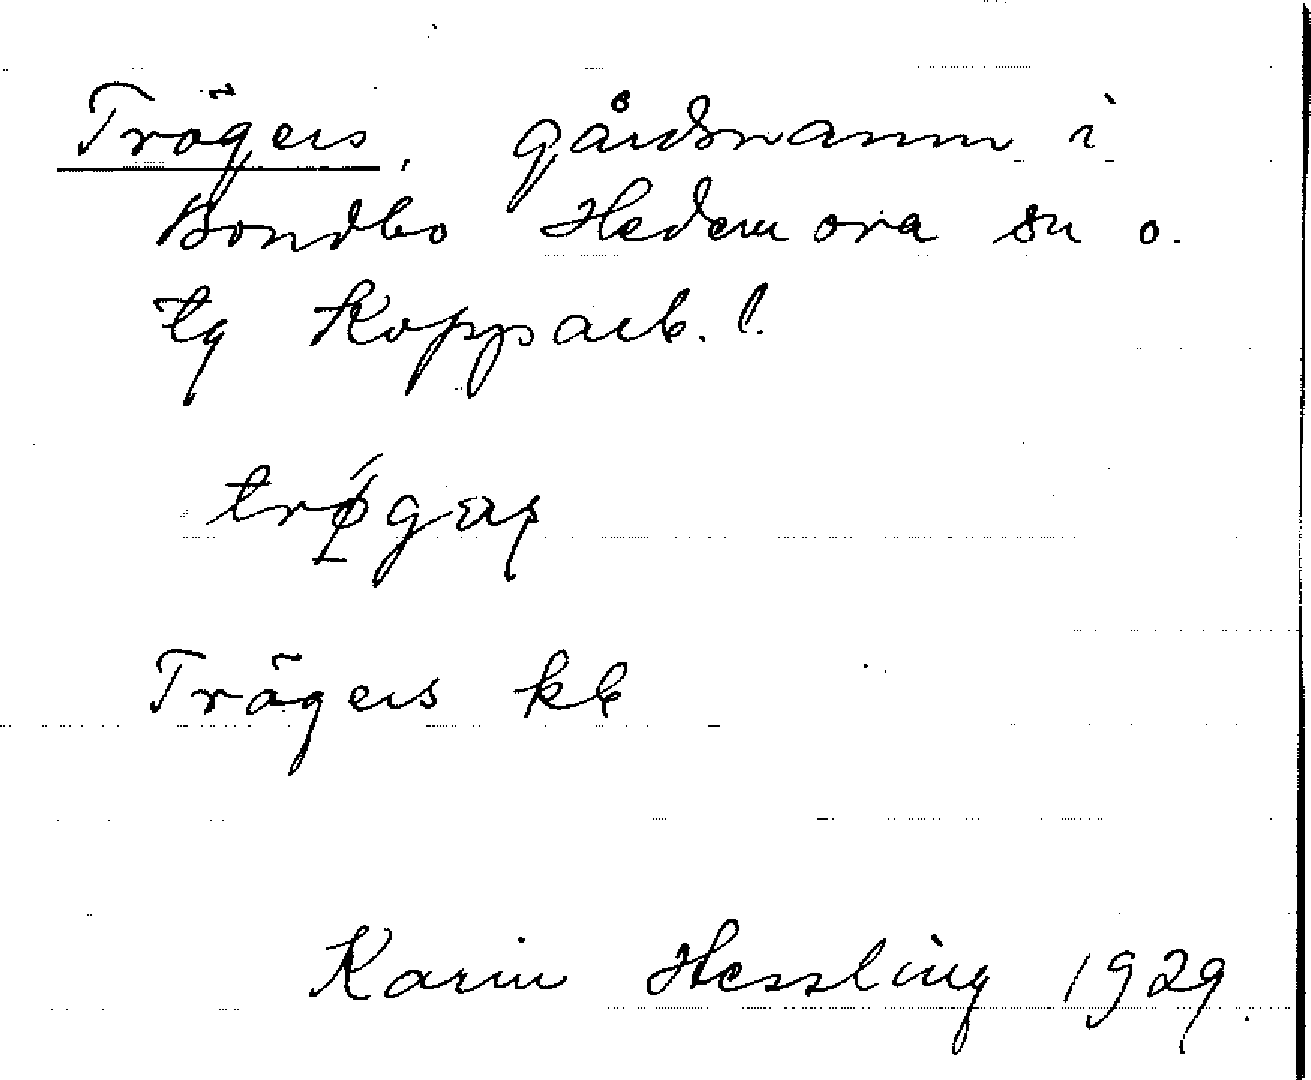 Trögers, gårdsnamn i
Bondbo Hedemora sn o.
tg Kopparb. l.
trǿ̨gaṣ
Trögers kb
Karin Hessling 1929.